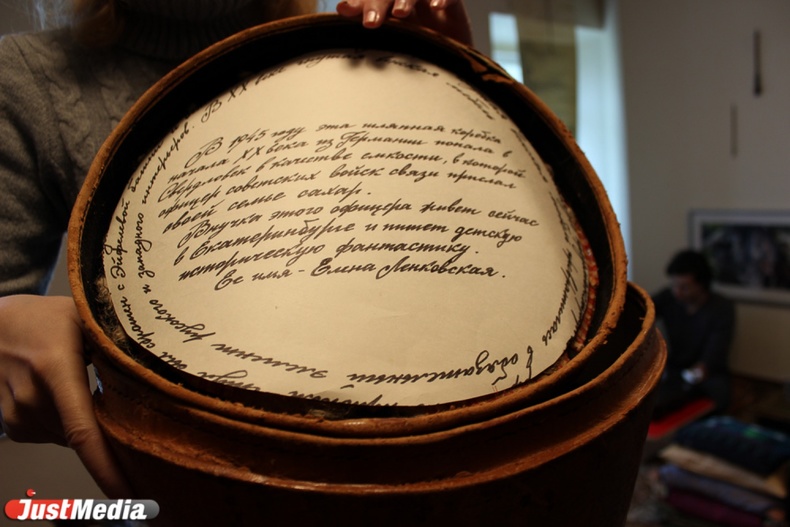 В 1945 году эта шляпная коробка
начала XX века из Германии попала в
Свердловск в качестве емкости, в которой
офицер советских войск связи прислал
своей семье сахар.
Внучка этого офицера живет сейчас
в Екатеринбурге и пишет детскую
историческую фантастику.
Ее имя - Елена Ленковская.
В XX веке
с Эйфелевой
и западного интерьеров.
в обязательный
элемент русского
JustMedia